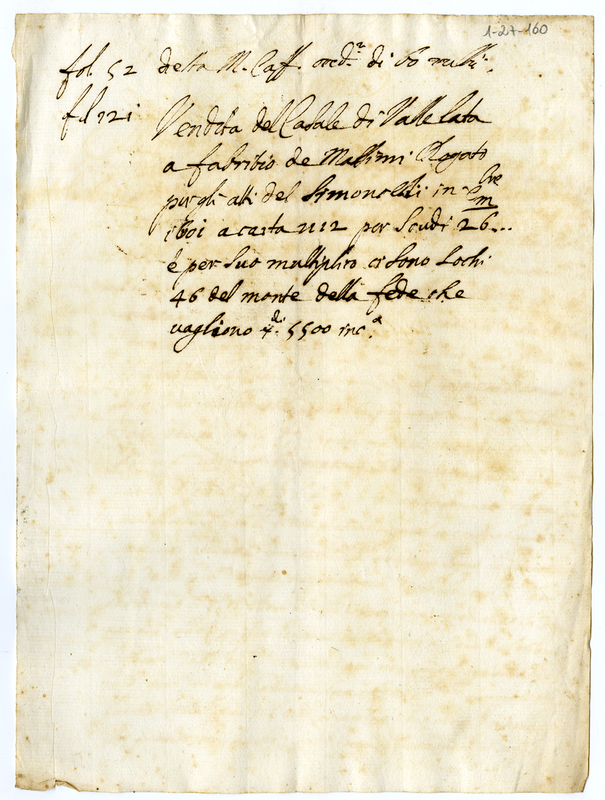 1-27-160
fol. 52 detta M. Caff. di 60 rubbi.
fol 121 Vendita del Casale di Valle Lata
a fabritio de Massimi Rogato
per gli atti del Simonelli in
1601 a carta 1112 per Scudi 26...
è per suo multiplico ci sono Lochi
46 del monte della fede che
vagliono di 5500 inc.a